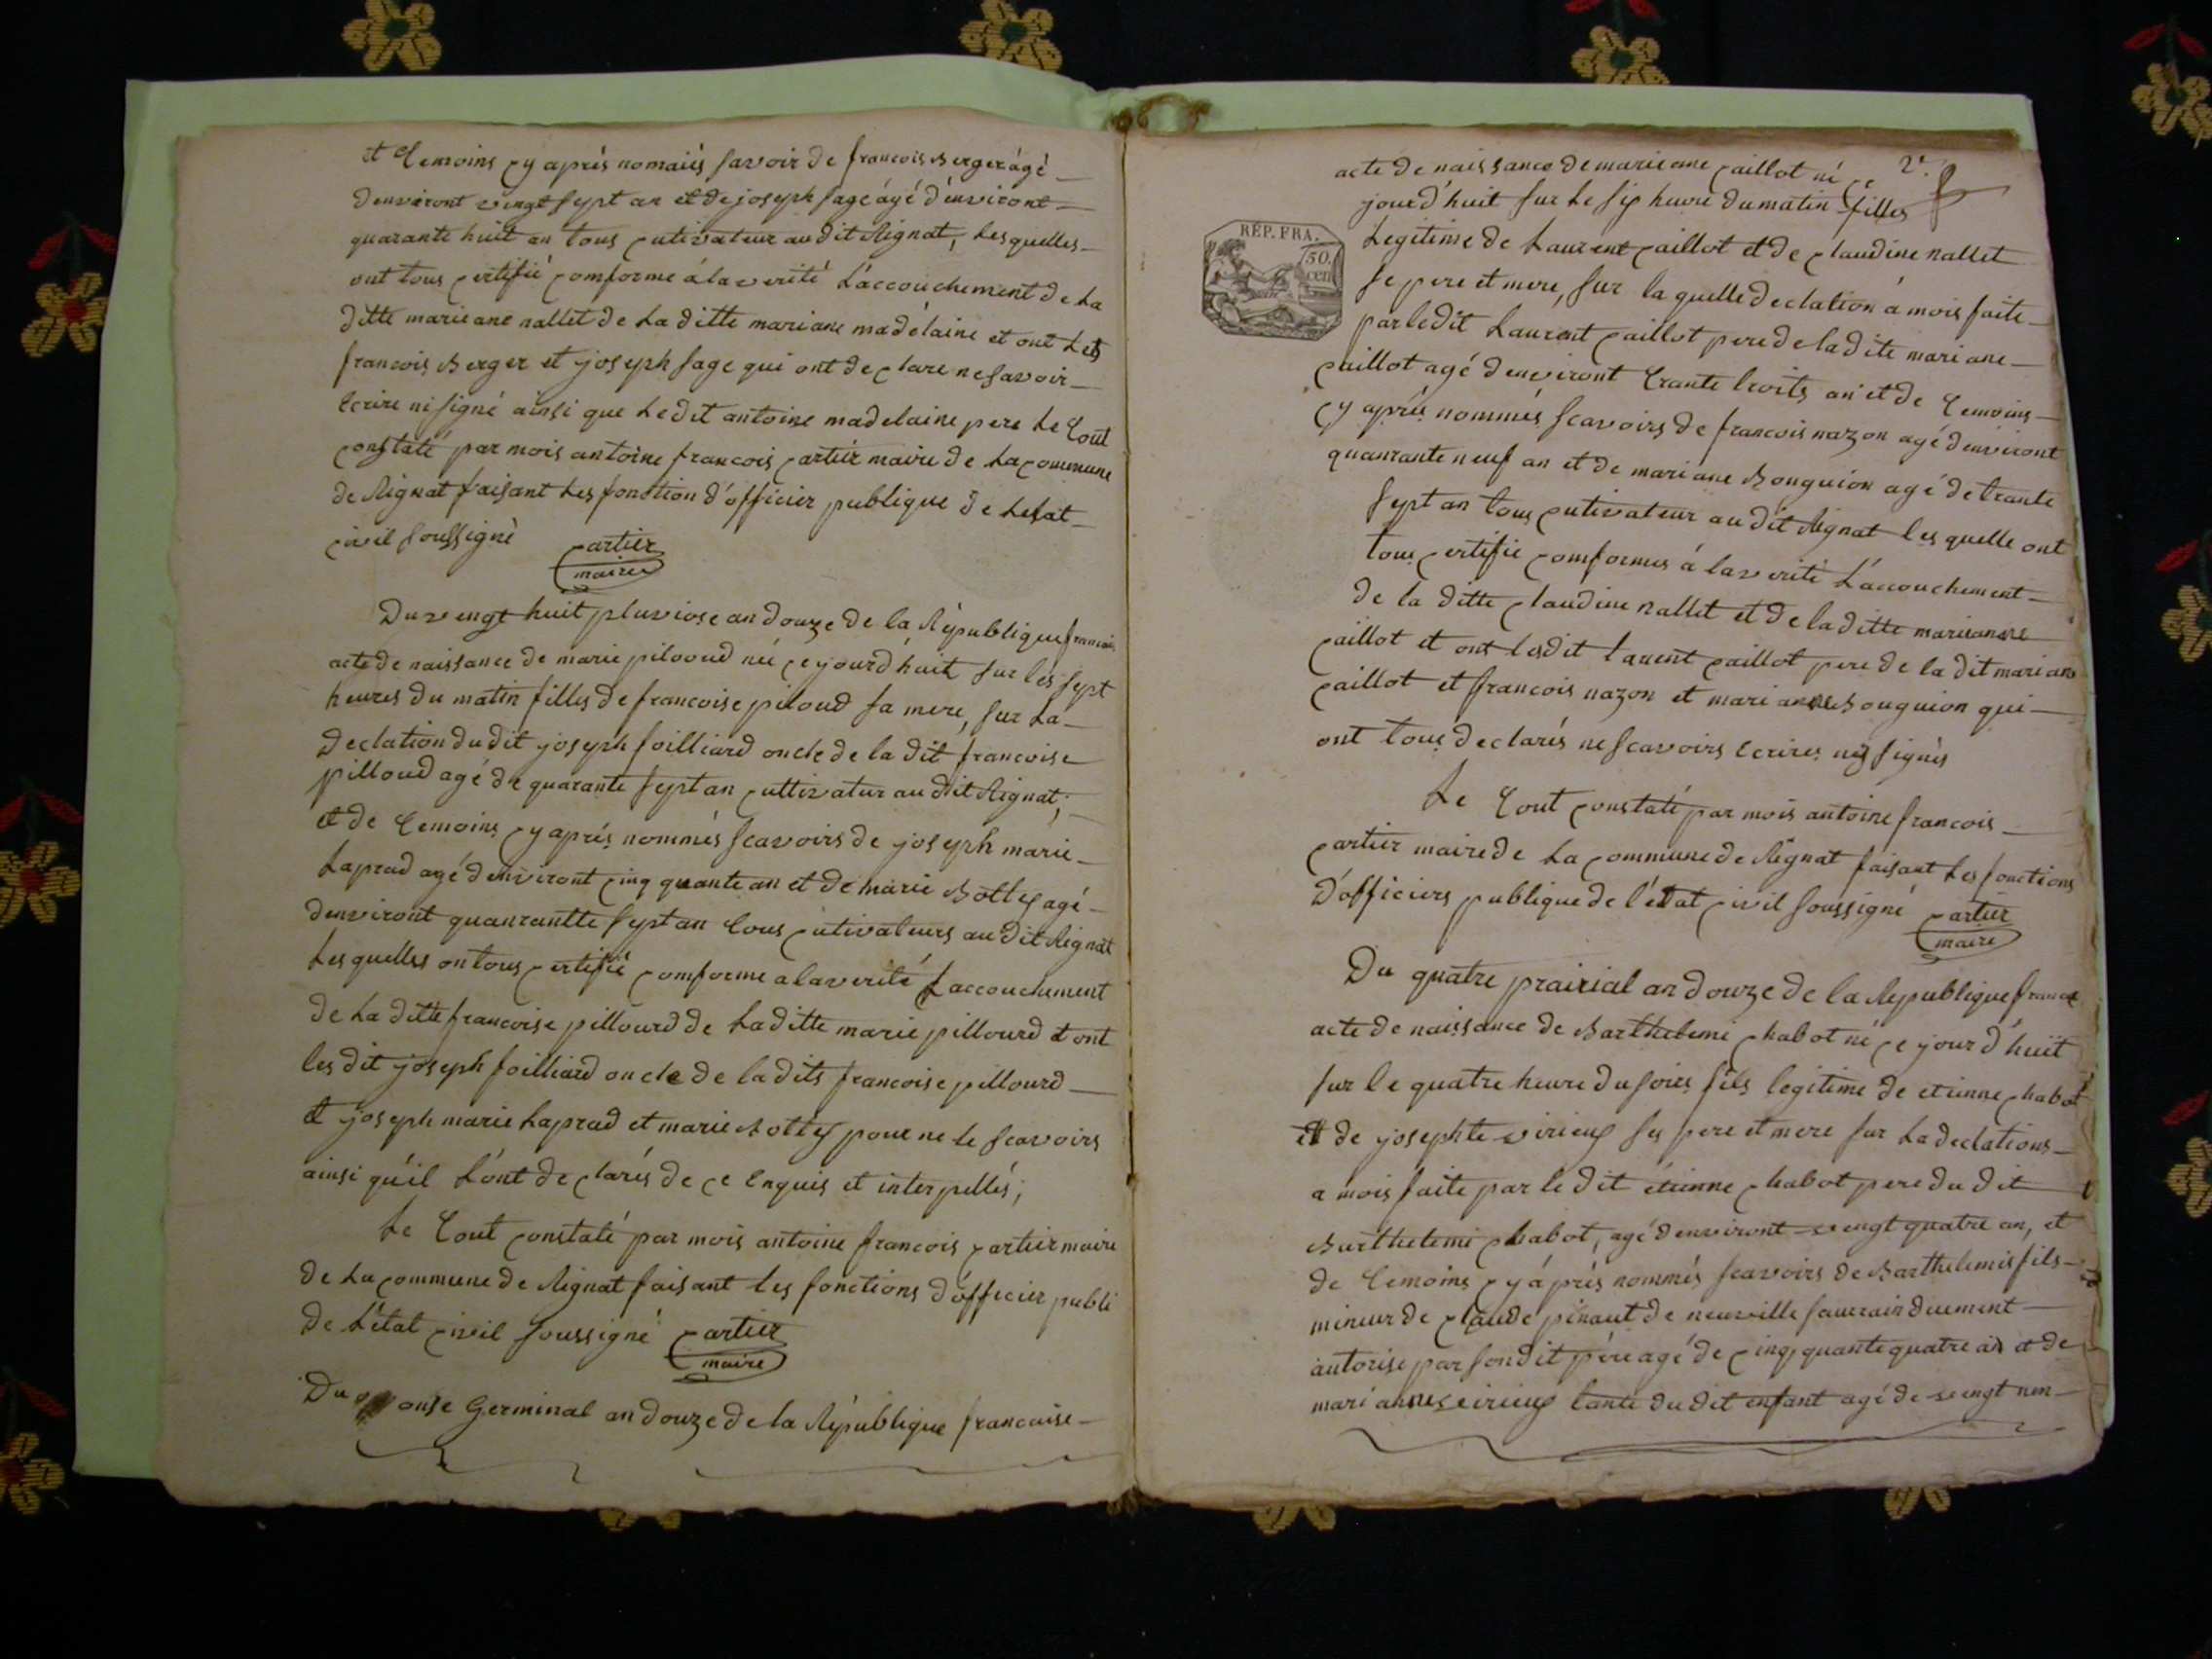 et temoins cy aprés nomaiés savoir de francois Berger ágé
denviront vingt sept an et de joseph sage ágé d'environt
quarante huit an tous cutivateur au dit Rignat, les quelles
ont tous certifié comforme á la verité L'accouchement de La
ditte marieane nallet de La ditte mariane madélaine et ont Les
francois Berger et joseph sage qui ont declare ne savoir
Ecrire ni signé ainsi que Le dit antoine madelaine pere Le tout
constaté par mois antoine francois cartier maire de La commune
de Rignat faisant Les fonction d'officier publique de Letat
civil soussigné
cartier
maire
Du vengt huit pluviose an douze de la Républiqu francais
acte de naissance de marie piloud née ce jourd'huit sur les sept
heures du matin filles de francoise piloud sa mere, sur La
Declation du dit joseph foilliard oncle de la dit francoise
pilloud agé de quarante sept an cuttivatur au dit Rignat;
et de temoins cy aprés nommés scavoirs de joseph marie
Laprad agé denviront cinqquante an et de marie Bottex agé
denviront quanrantte sept an tous cutivateurs au dit Rignat
Les quelles on tous certifié comforme a la verité Laccouchement
de La ditte francoise pillourd de La ditte marie pillourd et ont
les dit joseph foilliard oncle de la dits francoise pillourd
et joseph marie Laprad et marie Bottex pour ne le scavoirs
ainsi qu'il L'ont declarés de ce Enquis et interpellés;
Le tout constaté par mois antoine francois cartier maire
de La commune de Rignat faisant les fonctions d'officier publi
de L'état civil soussigné cartier
maire
Du onse Germinal an douze de la République francaise
2e
acte de naissance de marieane caillot né ce
jourd'huit sur Le six heure du matin filles
RÉP. FRA.
50.
cen
Legitime de Laurent caillot et de claudine nallet
se pere et mere, sur la quelle declation á mois faite
par le dit Laurent caillot pere de la dite mariane
caillot agé denviront trante troits an et de temoins
cy aprés nommés scavoirs de francois nazon agé denviront
quanrante neuf an et de mariane Bonguion agé de trante
sept an tous cutivateur au dit Rignat les quelle ont
tous certifie comformes á la verité L'accouchement
de la ditte claudine nallet et de la ditte marieanne
caillot et ont lesdit laurent caillot pere de la dit mariane
caillot et francois nazon et marianne Bouguion qui
ont tous declarés ne scavoirs Ecrires nis signés
Le tout constaté par mois antoine francois
cartier maire de La commune de Rignat faisant Les fonctions
D'officiers publique de l'état civil soussigné cartier
maire
Du quatre prairial an douze de la Republique france
acte de naissance de Barthelemi chabot né ce jourd'huit
sur le quatre heure du soires fils legitime de etienne chabot
et de josephte virieux ses pere et mere sur La declations
a mois faite par le dit étienne chabot pere du dit
Barthelemi chabot, agé denviront vengt quatre an, et
de temoins cy á prés nommés scavoirs de Barthelemis fils
mineur de claude pinaut de neuville duement
autorise par son dit pére agé de cinqquante quatre an et de
marianne virieux tante du dit enfant agé de vengt nen